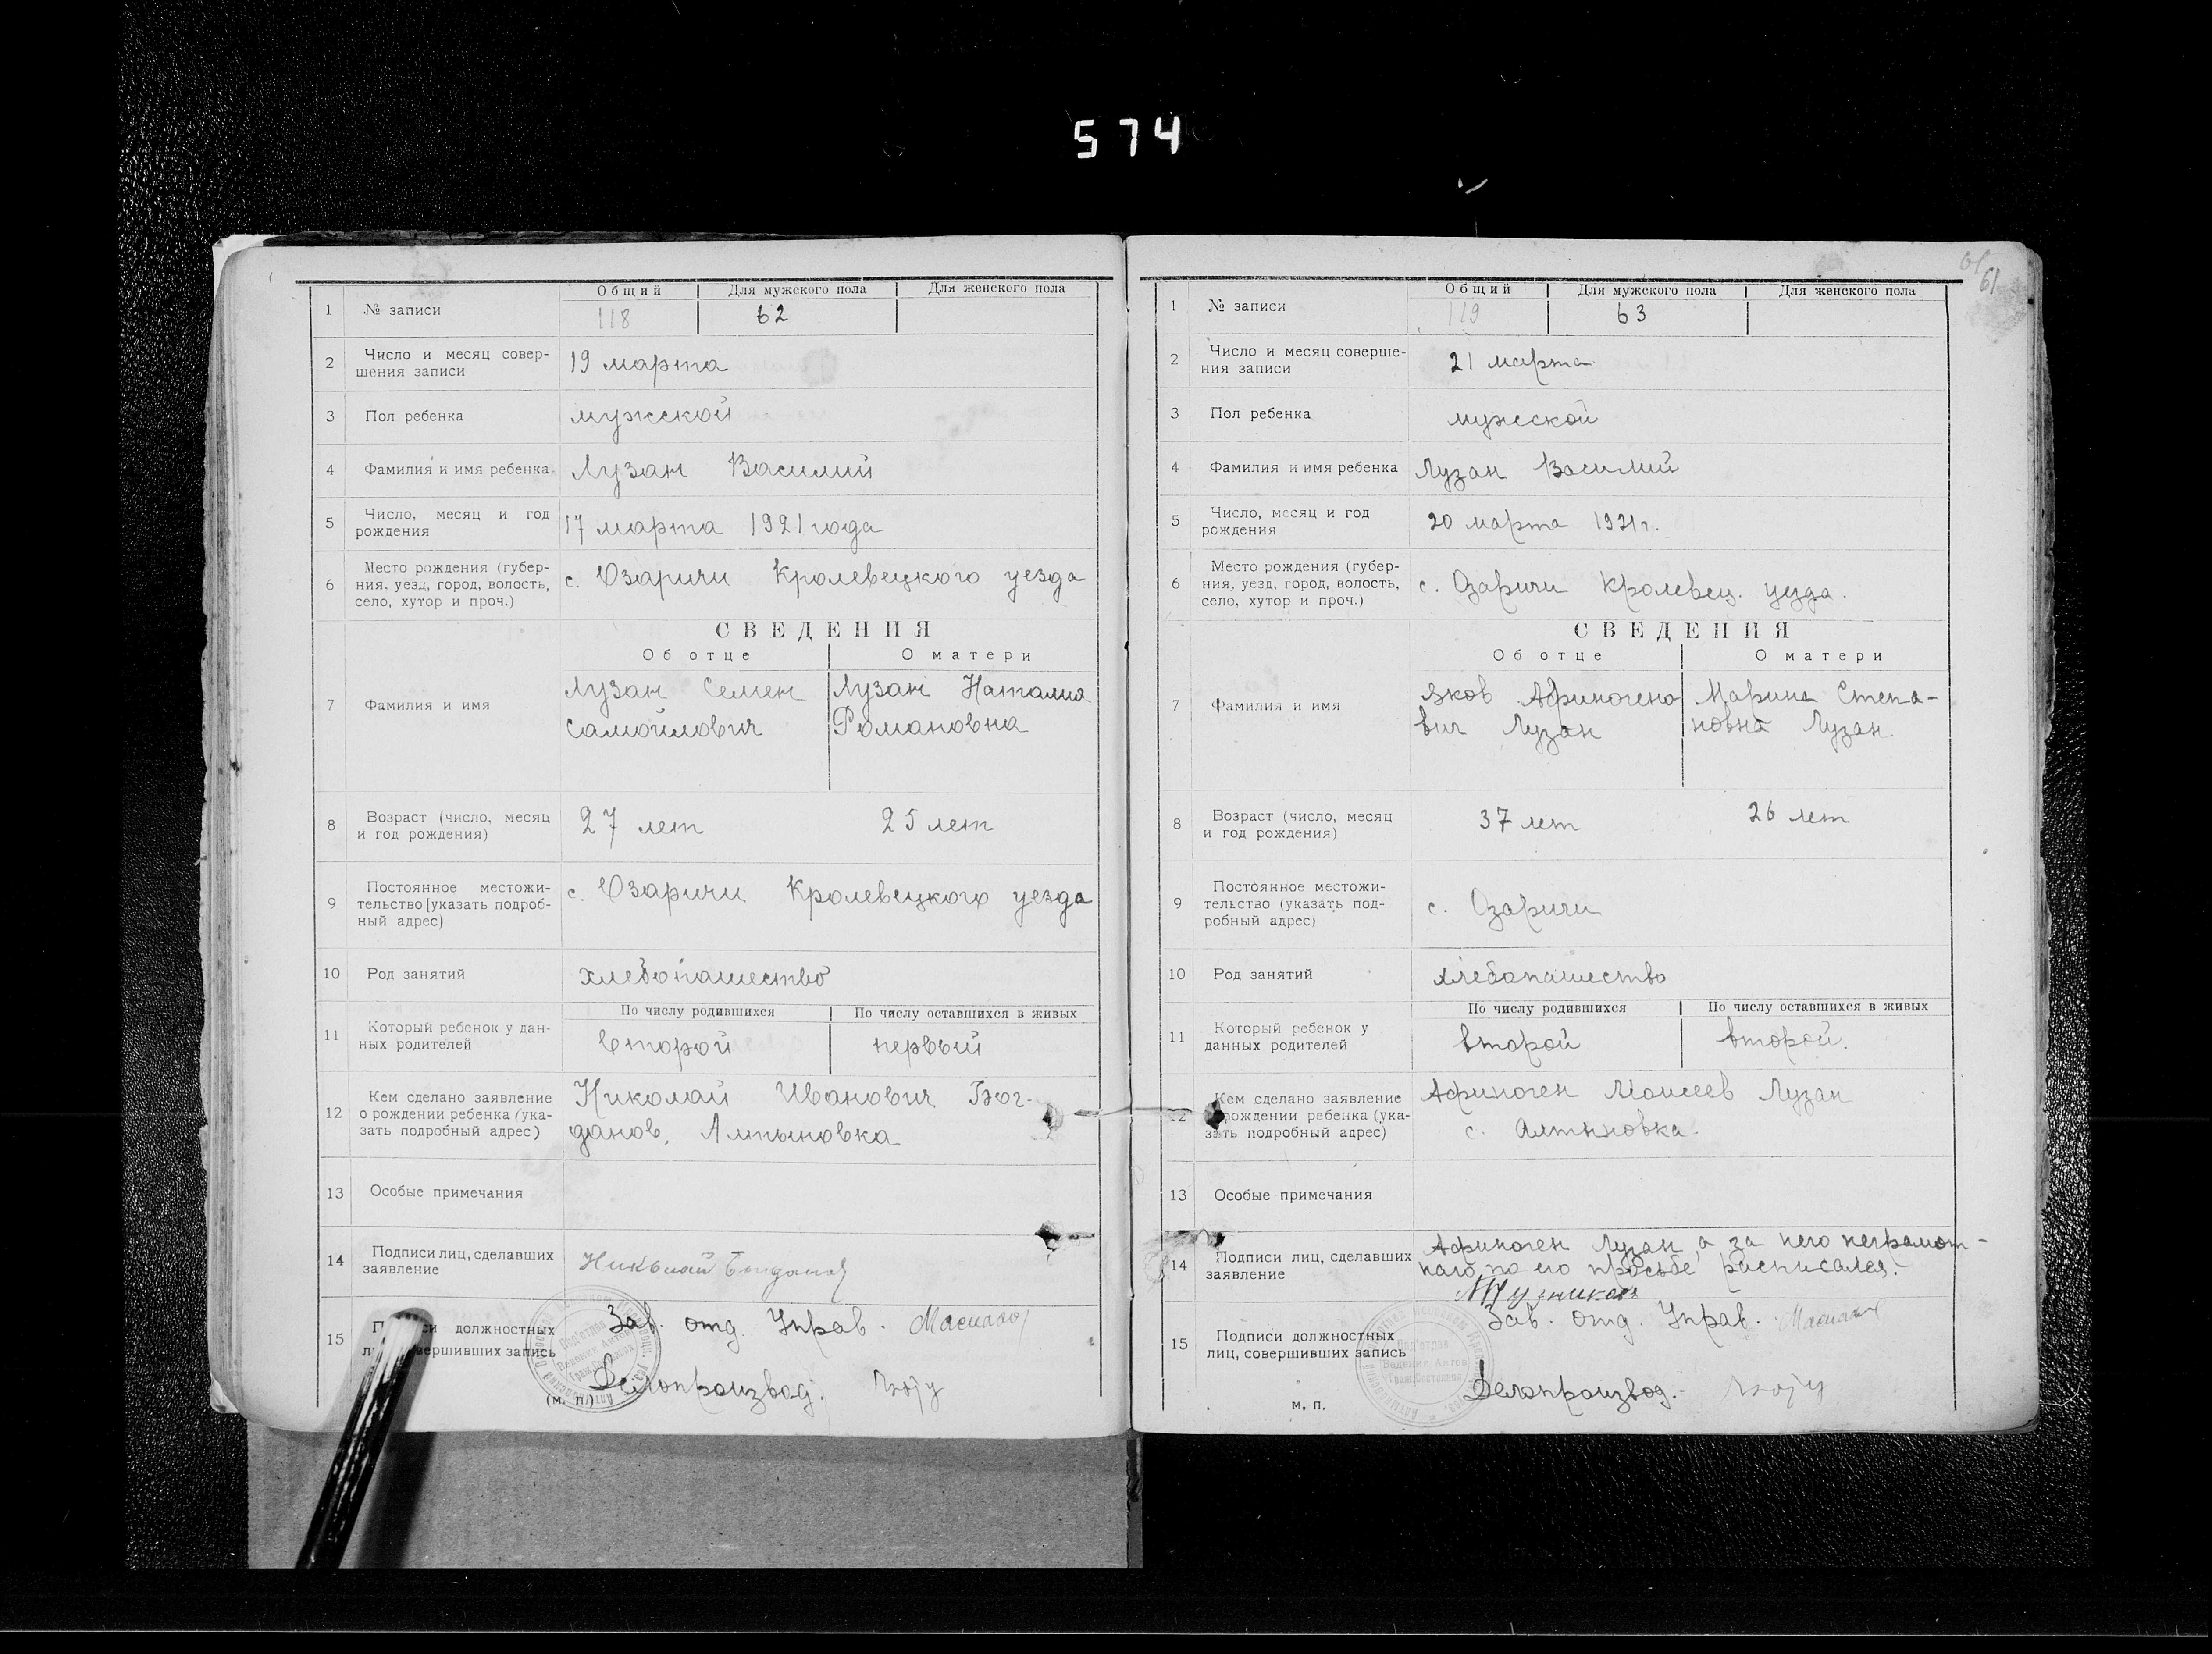 574
Общий Для мужского пола Для женского пола
1 № записи 118 62
2 Число и месяц совер-
шения записи 19 марта
3 Пол ребенка мужской
4 Фамилия и имя ребенка Лузан Василий
5 Число, месяц и год
рождения 17 марта 1921 года
6 Место рождения (губер-
ния, уезд, город, волость,
село, хутор и проч.) с. Озаричи Кролевецкого уезда
СВЕДЕНИЯ
Об отце О матери
7 Фамилия и имя
Лузан Семен Лузан Наталия
Самойлович Романовна
8 Возраст (число, месяц
и год рождения) 27 лет 25 лет
9 Постоянное местожи-
тельство [указать подроб-
ный адрес) с. Озаричи Кролевецкого уезда
10 Род занятий хлебопашество
По числу родившихся По числу оставшихся в живых
11 Который ребенок у дан-
ных родителей второй первый
12 Кем сделано заявление
о рождении ребенка (ука-
зать подробный адрес)
Николай Иванович Бог-
данов, Алтыновка
13 Особые примечания
14 Подписи лиц, сделавших
заявление Николай Богданов
15 должностных
запись
Зав. отд. Управ.
Делопроизвод.
(м. п.)
61
61
Общий Для мужского пола Для женского пола
1 № записи 119 63
2 Число и месяц соверше-
ния записи 21 марта
3 Пол ребенка мужской
4 Фамилия и имя ребенка Лузан Василий
5 Число, месяц и год
рождения 20 марта 1921 г.
6 Место рождения (губер-
ния, уезд, город, волость,
село, хутор и проч.) с. Озаричи Кролевец. уезда.
СВЕДЕНИЯ
Об отце О матери
7 Фамилия и имя
Яков Афиногено Марина Степа-
вич Лузан новна Лузан
8 Возраст (число, месяц
и год рождения) 37 лет 26 лет
9 Постоянное местожи-
тельство (указать под-
робный адрес) с. Озаричи
10 Род занятий хлебопашество
По числу родившихся По числу оставшихся в живых
11 Который ребенок у
данных родителей второй второй.
12 Кем сделано заявление
о рождении ребенка (ука-
зать подробный адрес)
Афиноген Моисеев Лузан
с. Алтыновка.
13 Особые примечания
14 Подписи лиц, сделавших
заявление
Афиноген Лузан, а за него неграмот-
наго, по его просьбе расписался.
15 Подписи должностных
лиц, совершивших запись
Зав. отд. Управ.
Делопроизвод.
м. п.